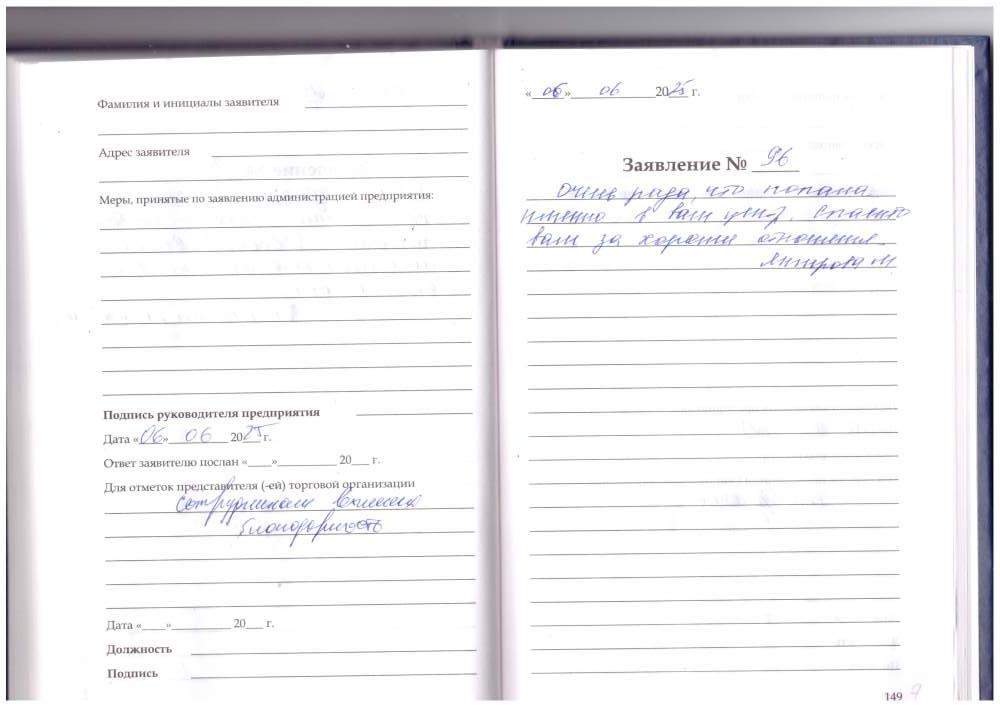 Фамилия и инициалы заявителя
Адрес заявителя
Меры, принятые по заявлению администрацией предприятия:
Подпись руководителя предприятия
Дата «06» 06 2025 г.
Ответ заявителю послан «____»__________ 20___ г.
Для отметок представителя (-ей) торговой организации
сотрудникам
благодарность
Дата «____»__________ 20___ г.
Должность
Подпись
«06» 06 2025 г.
Заявление № 96
Очень рада, что попала
именно в ваш центр. Спасибо
вам за хорошие отношения.
149